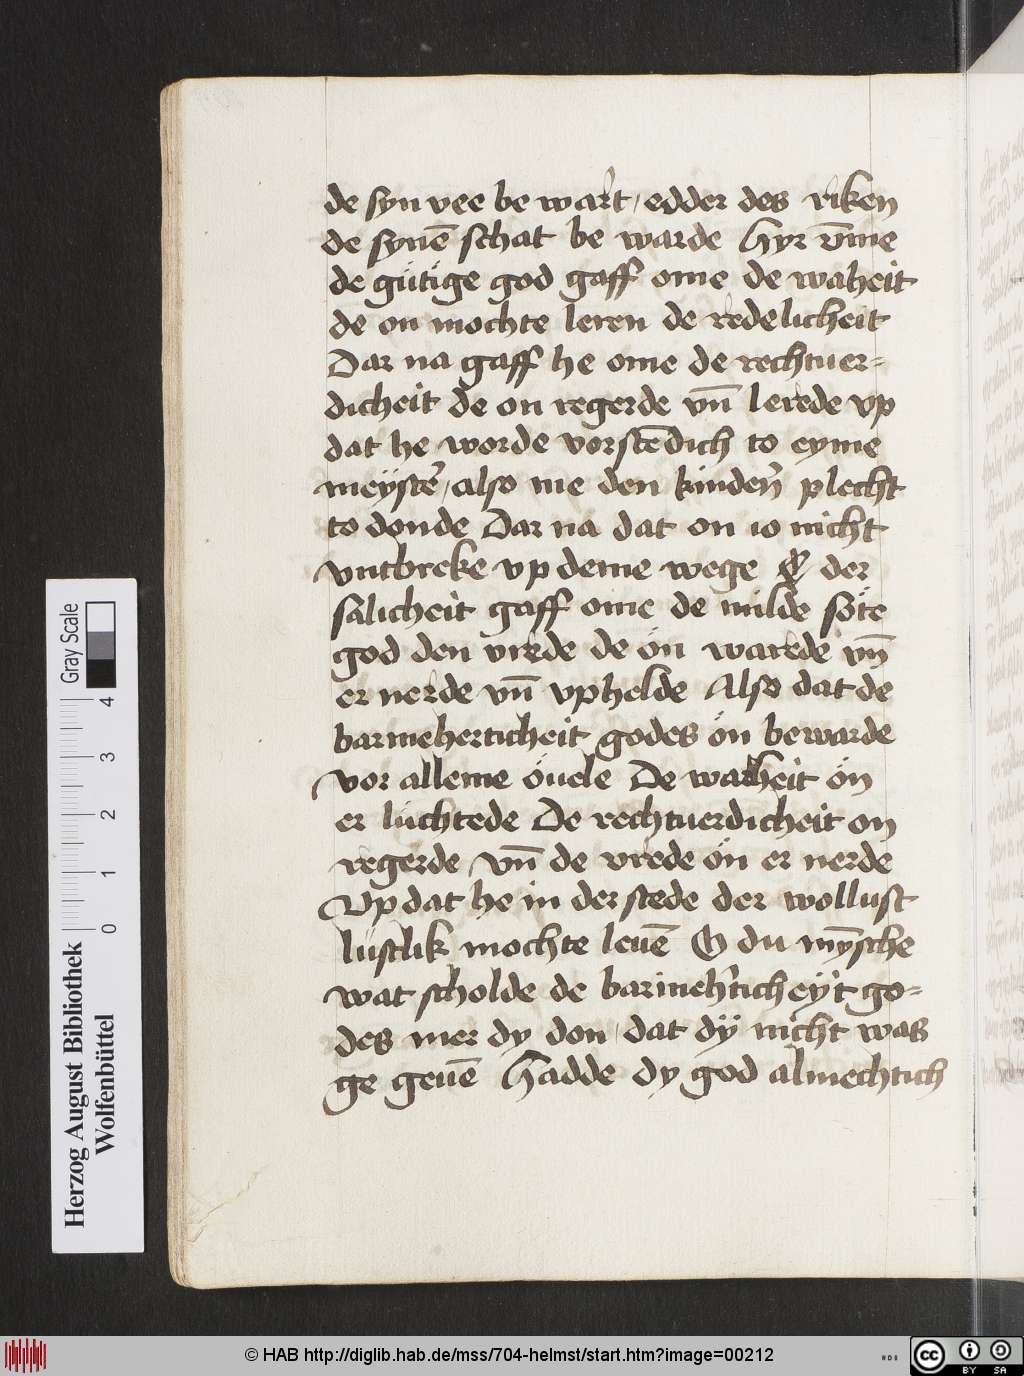 de syn vee be wart / edder des riken
de synē schat be warde Hyr v̄me
de gütige god gaff ome de waheit
de on mochte leren de redelicheit
Dar na gaff he ome de rechtuer=
dicheit de on regerde vn̄ lerede vp
dat he worde vorstēdich to eyme
meÿster̄ / also me den kinden̄ plecht
to donde Dar na dat on io nicht
vntbreke vp deme wege der
salicheit gaff ome de milde söte
god den vrede de ön warede vn̄
er nerde vn̄ vphelde Also dat de
barmeherticheit godes ön bewarde
vor alleme öuele De warheit ön
er lüchtede De rechtuerdicheit on
regerde vn̄ de vrede ön er nerde
Vp dat he in der stede der wollust
lüstlik mochte leuē O du my̅sche
wat scholde de barmeh'tich eyt go=
des mer dy don / dat dÿ nicht was
ge geuē Hadde dy god almechtich
Herzog August Bibliothek
Wolfenbüttel
0 1 2 3 4
Gray Scale
© HAB http://diglib.hab.de/mss/704-helmst/start.htm?image=00212
HAB
cc BY SA